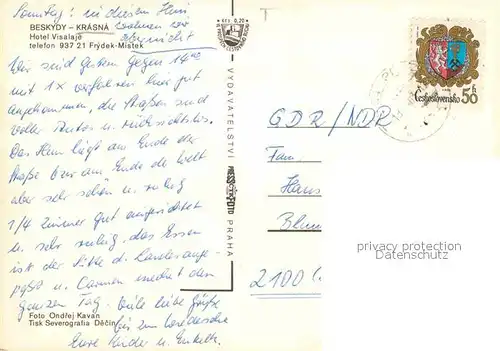 Sonntag: in diesem Heim
BESKYDY - KRÁSNÁ wohnen wir
Hotel Visalaje
telefon 937 21 Frýdek-Místek
Wir sind gestern gegen 14
mit 1x verfahren hier gut
angekommen, die Straßen sind
voller Autos u. rücksichtslos.
Das Heim liegt am Ende der
Straße bzw. am Ende der Welt
aber sehr schön u. ruhig
1/4 Zimmer gut eingerichtet
u. sehr ruhig. das Essen
ist der Sitte d. Landes ange-
paßt u. Carmen den
ganzen Tag. Viele liebe Grüße
bis zum Wiedersehen
Eure Kinder u. Enkelk.
Foto Ondřej Kavan
Tisk Severografia Děčín
0,20
VYDAVATELSTVÍ
PRESSFOTO
PRAHA
Československo 50 h
GDR/NDR
Fam.
Hans
Blum
2100
privacy protection
Datenschutz